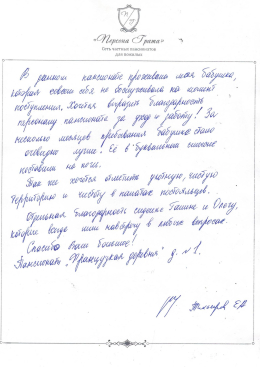 «Персона Грата»
Сеть частных пансионатов
для пожилых
В данном пансионате проживала моя бабушка,
которая совсем себя не обслуживала на момент
поступления. Хочется выразить благодарность
персоналу пансионата за уход и работу! За
несколько месяцев пребывания бабушке стало
очевидно лучше! Её в буквальном смысле
поставили на ноги.
Так же хочется отметить уютную, чистую
территорию и чистоту в палатах постояльцев.
Отдельная благодарность сиделке Галине и Олегу,
которые всегда шли навстречу в любых вопросах.
Спасибо Вам большое!
Пансионат "Французская деревня" д. №1.